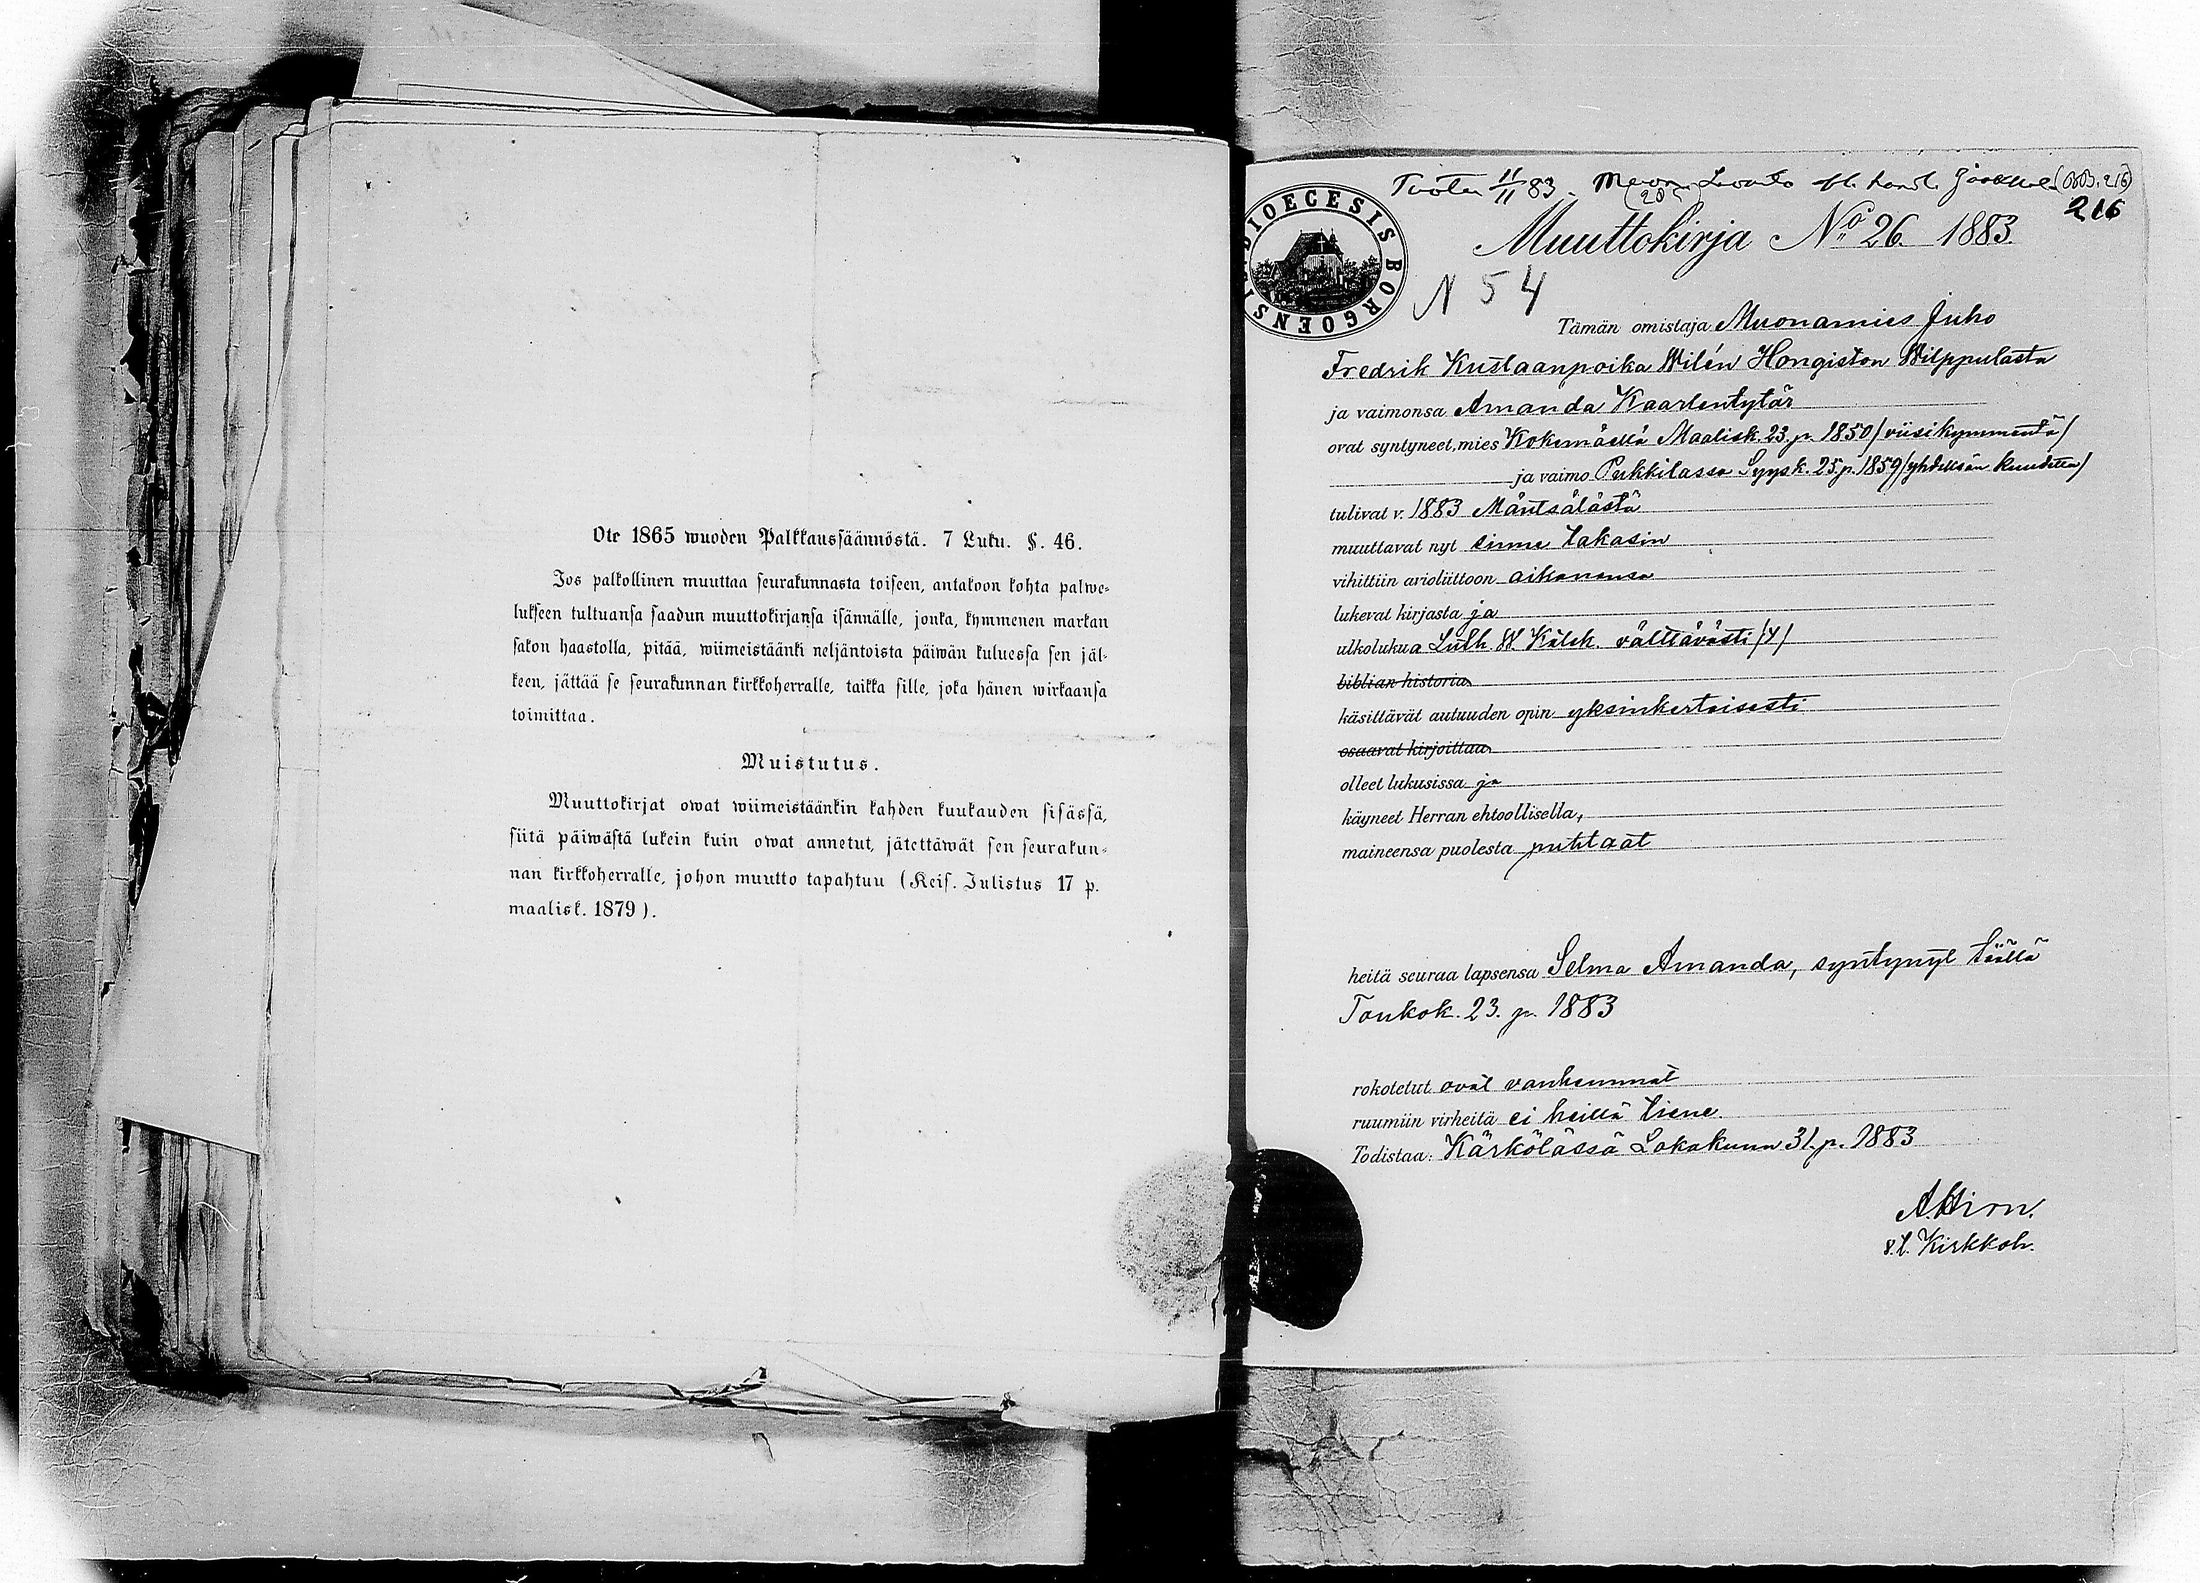 Ote 1865 wuoden Palkkaussäännöstä. 7 Luku. §. 46.
Jos palkollinen muuttaa seurakunnasta toiseen, antakoon kohta palwe-
lukseen tultuansa saadun muuttokirjansa isännälle, jonka, kymmenen markan
sakon haastolla, pitää, wiimeistäänki neljäntoista päiwän kuluessa sen jäl-
keen, jättää se seurakunnan kirkkoherralle, taikka sille, joka hänen wirkaansa
toimittaa.
Muistutus.
Muuttokirjat owat wiimeistäänkin kahden kuukauden sisässä,
siitä päiwästä lukein kuin owat annetut, jätettäwät sen seurakun-
nan kirkkoherralle, johon muutto tapahtuu (Keis. Julistus 17 p.
maalisk. 1879).
Tuotu 11/11 83
216
DIOECESIS BORGOENSIS
Muuttokirja No 26. 1883.
N 54
Tämän omistaja Muonamies Juho
Fredrik Kustaanpoika Wilén Hongiston Wilppulasta
ja vaimonsa Amanda Kaarlentytär
ovat syntyneet, mies Kokemäellä Maalisk. 23. p. 1850 /viisikymmentä/
ja vaimo Pukkilassa Syysk. 25. p. 1859
tulivat v. 1883 Mäntsälästä
muuttavat nyt sinne takasin
vihittiin avioliittoon aikanansa
lukevat kirjasta ja
ulkolukua Luth. W. Kätek. välttävästi /4/
biblian historia
käsittävät autuuden opin yksinkertaisesti
osaavat kirjoittaa
olleet lukusissa ja
käyneet Herran ehtoollisella,
maineensa puolesta puhtaat
heitä seuraa lapsensa Selma Amanda, syntynyt täällä
Toukok. 23. p. 1883
rokotetut ovat vanhemmat
ruumiin virheitä ei heillä liene.
Todistaa: Kärkölässä Lokakuun 31. p. 1883
A. Hirn.
v. t. Kirkkoh.